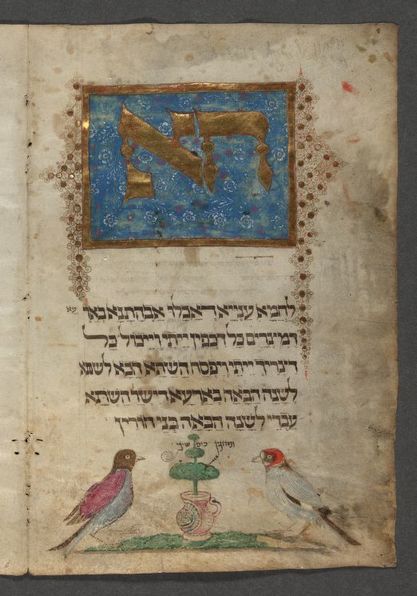 הא
לחמא ענייא די אכלו אבהתנא באר עא
דמצרים כל דכפין ייתי וייכול כל
דצריך ייתי ויפסח השתא הכא
לשנה הבאה בארעא דישר השתא
עבדי לשנה הבאה בני חורין
כוס שיני